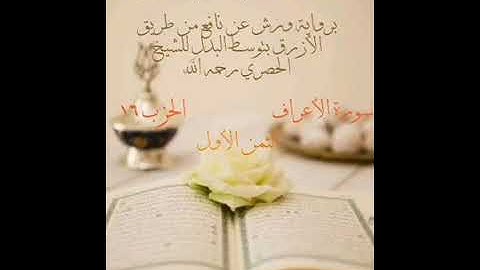 برواية ورش عن نافع من طريق
الأزرق بتوسط البدل للشيخ
الحصري رحمه الله
سورة الأعراف الحزب ١٦
الثمن الأول